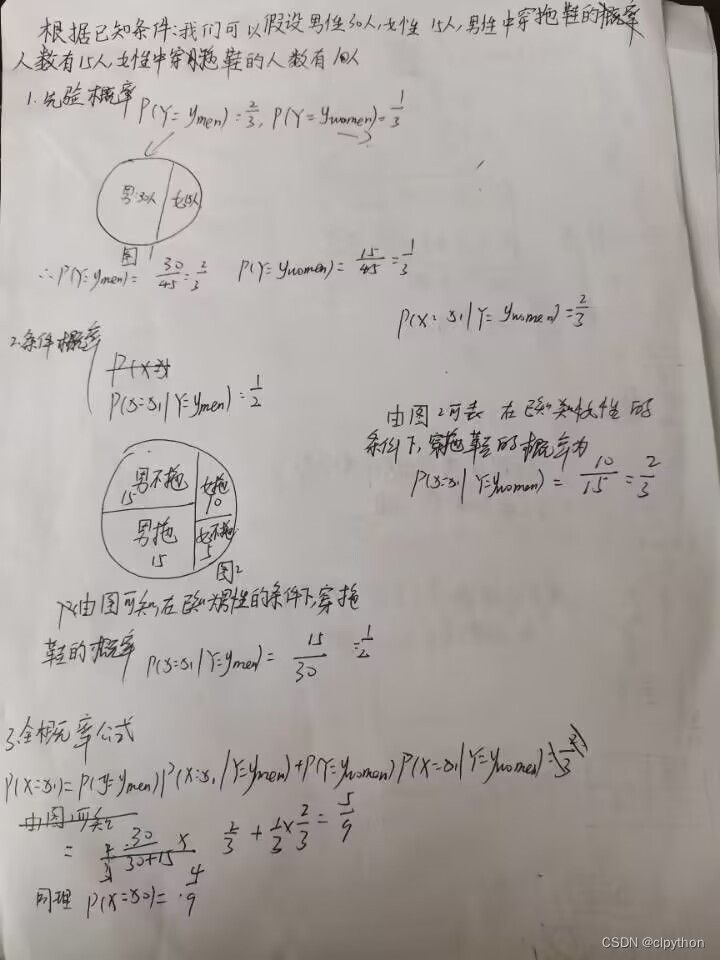 根据已知条件:我们可以假设男性30人,女性 15人,男性中穿拖鞋的概率
人数有15人,女性中穿拖鞋的人数有10人
1.先验概率 P(Y=ymen)=2/3, P(Y=ywomen)=1/3
男:30人 女15人
图1
∴P(Y=ymen)= 30/45=2/3 P(Y=ywomen)= 15/45=1/3
P(X=x1|Y=ywomen)=2/3
2.条件概率
P(x=x1|Y=ymen)=1/2
由图2可知 在已知女性的
条件下,穿拖鞋的概率为
P(x=x1|Y=ywomen)= 10/15=2/3
男不拖 15
女拖 10
男拖 15
女不拖 5
图2
由图可知,在已知男性的条件下,穿拖
鞋的概率 P(x=x1|Y=ymen)= 15/30 =1/2
3.全概率公式
P(X=x1)=P(Y=ymen)P(X=x1|Y=ymen)+P(Y=ywomen)P(X=x1|Y=ywomen)=
由图可知
= 30/30+15 x 2/3+1/3×2/3=5/9
同理 P(X=x0)=4/9
CSDN @clpython